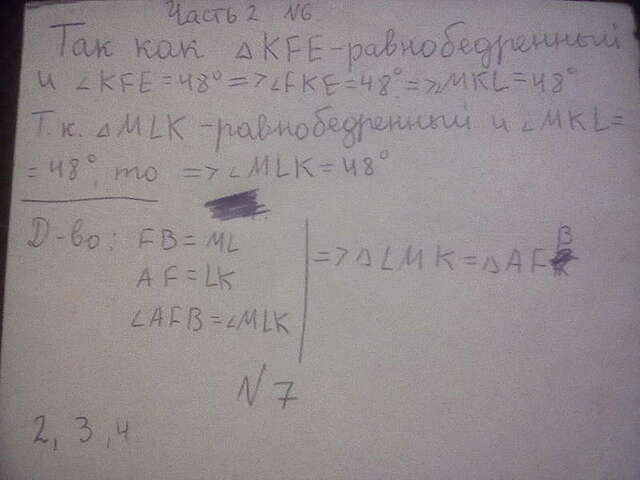 Часть 2 №6
Так как △KFE-равнобедренный
и ∠KFE=48° => ∠FKE=48° => ∠MKL=48°
Т.к. △MLK-равнобедренный и ∠MKL=
=48°, то => ∠MLK=48°
Д-во: FB=ML
AF=LK
∠AFB=∠MLK
=> △LMK=△AFB
№7
2, 3, 4